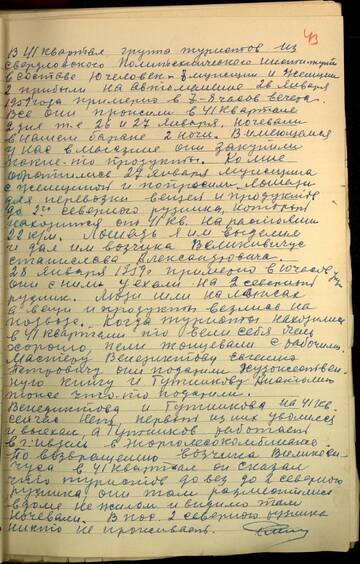 43
В 41 квартал група туристов из
Свердловского Политехнического института
в составе 10 человек - 8 мужчин и женщин
2 прибыли на автомашине 26 января
1959 года примерно в 7-8 часов вечера.
Все они прожили в 41 квартале
2 дня т.е 26 и 27 января, ночевали
в нашем бараке 2 ночи. В имеющемся
у нас в магазине они закупили
какие-то продукты. Ко мне
обратились 27 января мужчина
с женщиной и попросили лошадь
для перевозки вещей и продуктов
до 2го северного рудника, который
находится от 41 кв. на расстоянии
22 км. Лошадь я им выделил
и дал им возчика Великявичус
Станислава Александровича.
28 января 1959г примерно в 10 часов
они с ним уехали на 2 северный
рудник. Люди шли на лыжах
а вещи и продукты везли на
подводе. Когда туристы находились
в 41 квартале то вели себя
хорошо, пели танцевали с рабочими.
Мастеру Венедиктову Евгению
Петровичу они подарили художествен-
ную книгу и Гутникову Анатолию
тоже что-то подарили.
Венедиктова и Гутникова на 41 кв.
сейчас нет, первый из них уволился
и выехал, а Гутников работает
в г. Ивдель в Энерголесокомбинате.
По возвращению возчика Великяви-
чуса в 41 квартал он сказал
что туристов до вез до 2 северного
рудника они там разместились
в доме не жилом и видимо там
ночевали. В пос. 2 северного рудника
никто не проживает.